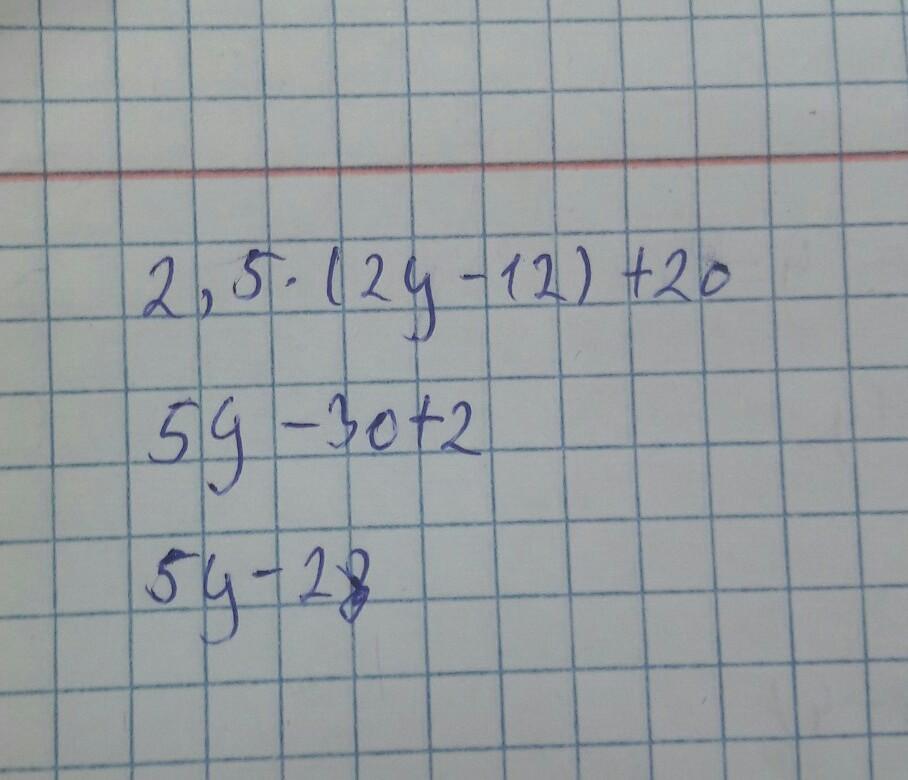 2,5·(2y-12)+20
5y-30+2
5y-28